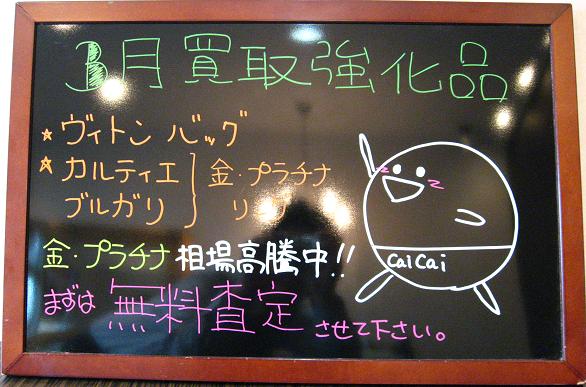 3月買取強化品
★ヴィトン バッグ
★カルティエ
ブルガリ
金・プラチナ
リング
金・プラチナ 相場高騰中!!
まずは 無料査定 させて下さい。
CaiCai